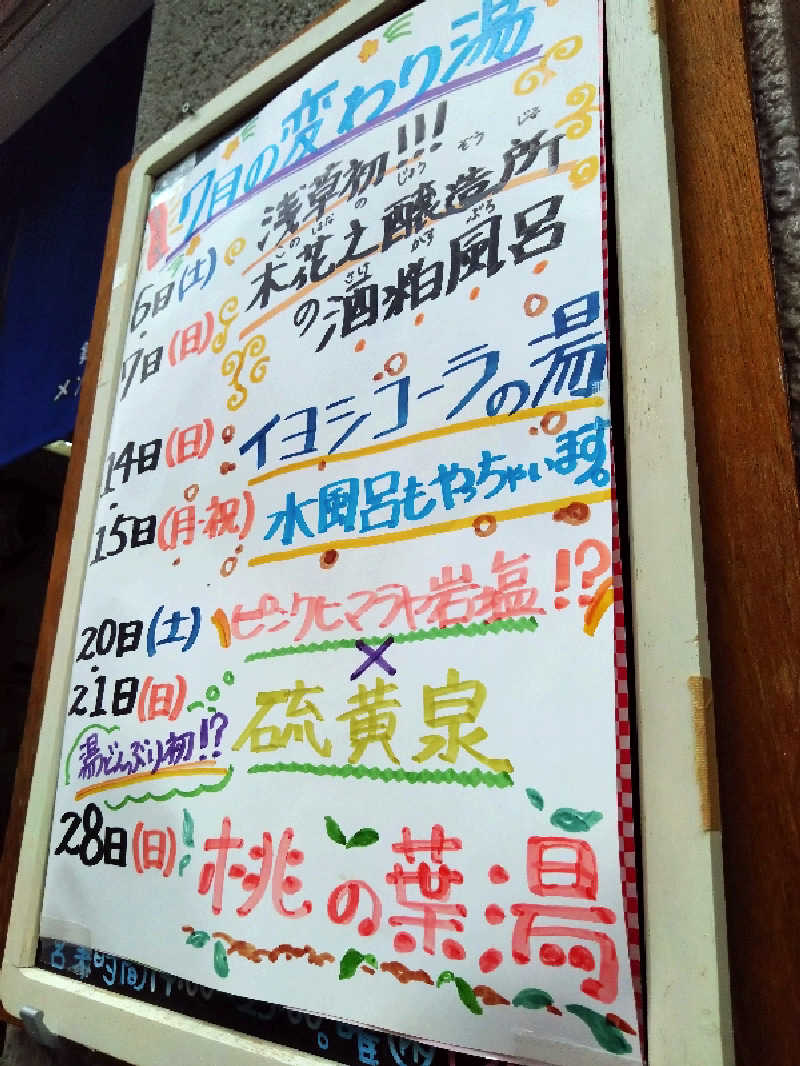 7月の変わり湯
6日(土)
7日(日)
浅草初!!!
このはなのじょうぞうじょ
木花之醸造所
さけかすぶろ
の酒粕風呂
14日(日)
15日(月・祝)
イヨシコーラの湯
水風呂もやっちゃいます。
20日(土)
21日(日)
湯どんぶり初!?
ピンクヒマラヤ岩塩!?
×
硫黄泉
28日(日)
桃の葉湯